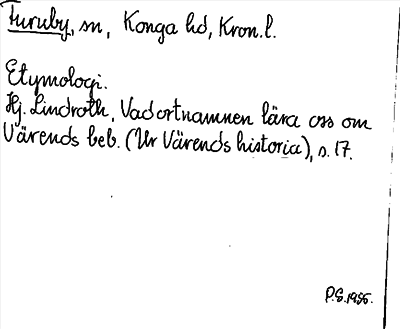 Furuby, sn, Konga hd, Kron.l.
Etymologi.
Hj. Lindroth, Vad ortnamnen lära oss om
Värends beb. (Ur Värends historia), s. 17.
P.S. 1956.